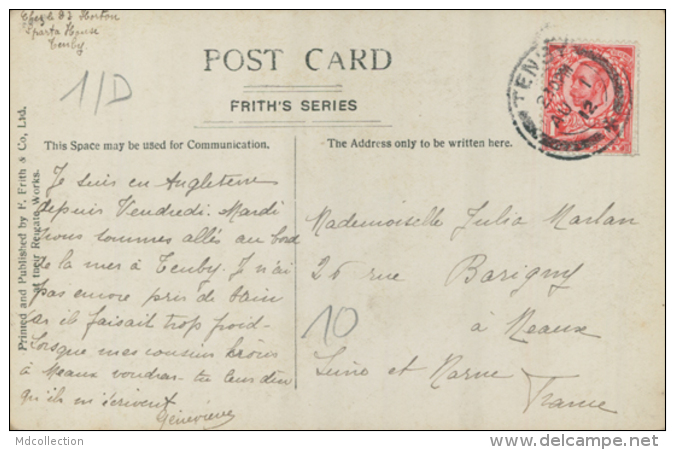 Horton
Sparta House
Tenby
1/D
POST CARD
FRITH'S SERIES
TENBY
AU 1
12
Printed and Published by F. Frith & Co, Ltd.
at their Reigate Works.
This Space may be used for Communication.
The Address only to be written here.
Je suis en Angleterre
depuis Vendredi. Mardi
nous sommes allés au bord
de la mer à Tenby. Je n'ai
pas encore pris de bain
car il faisait trop froid-
Lorsque mes cousins
à Meaux voudras-tu leur dire
qu'ils m'écrivent
Geneviève
Mademoiselle Julia Marlan
26 rue Barigny
à Meaux
Seine et Marne
France
10
Mdcollection
www.delcampe.net